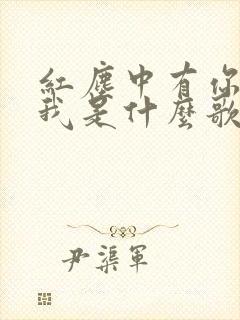 紅塵中有你
我是什麼歌
尹渠軍